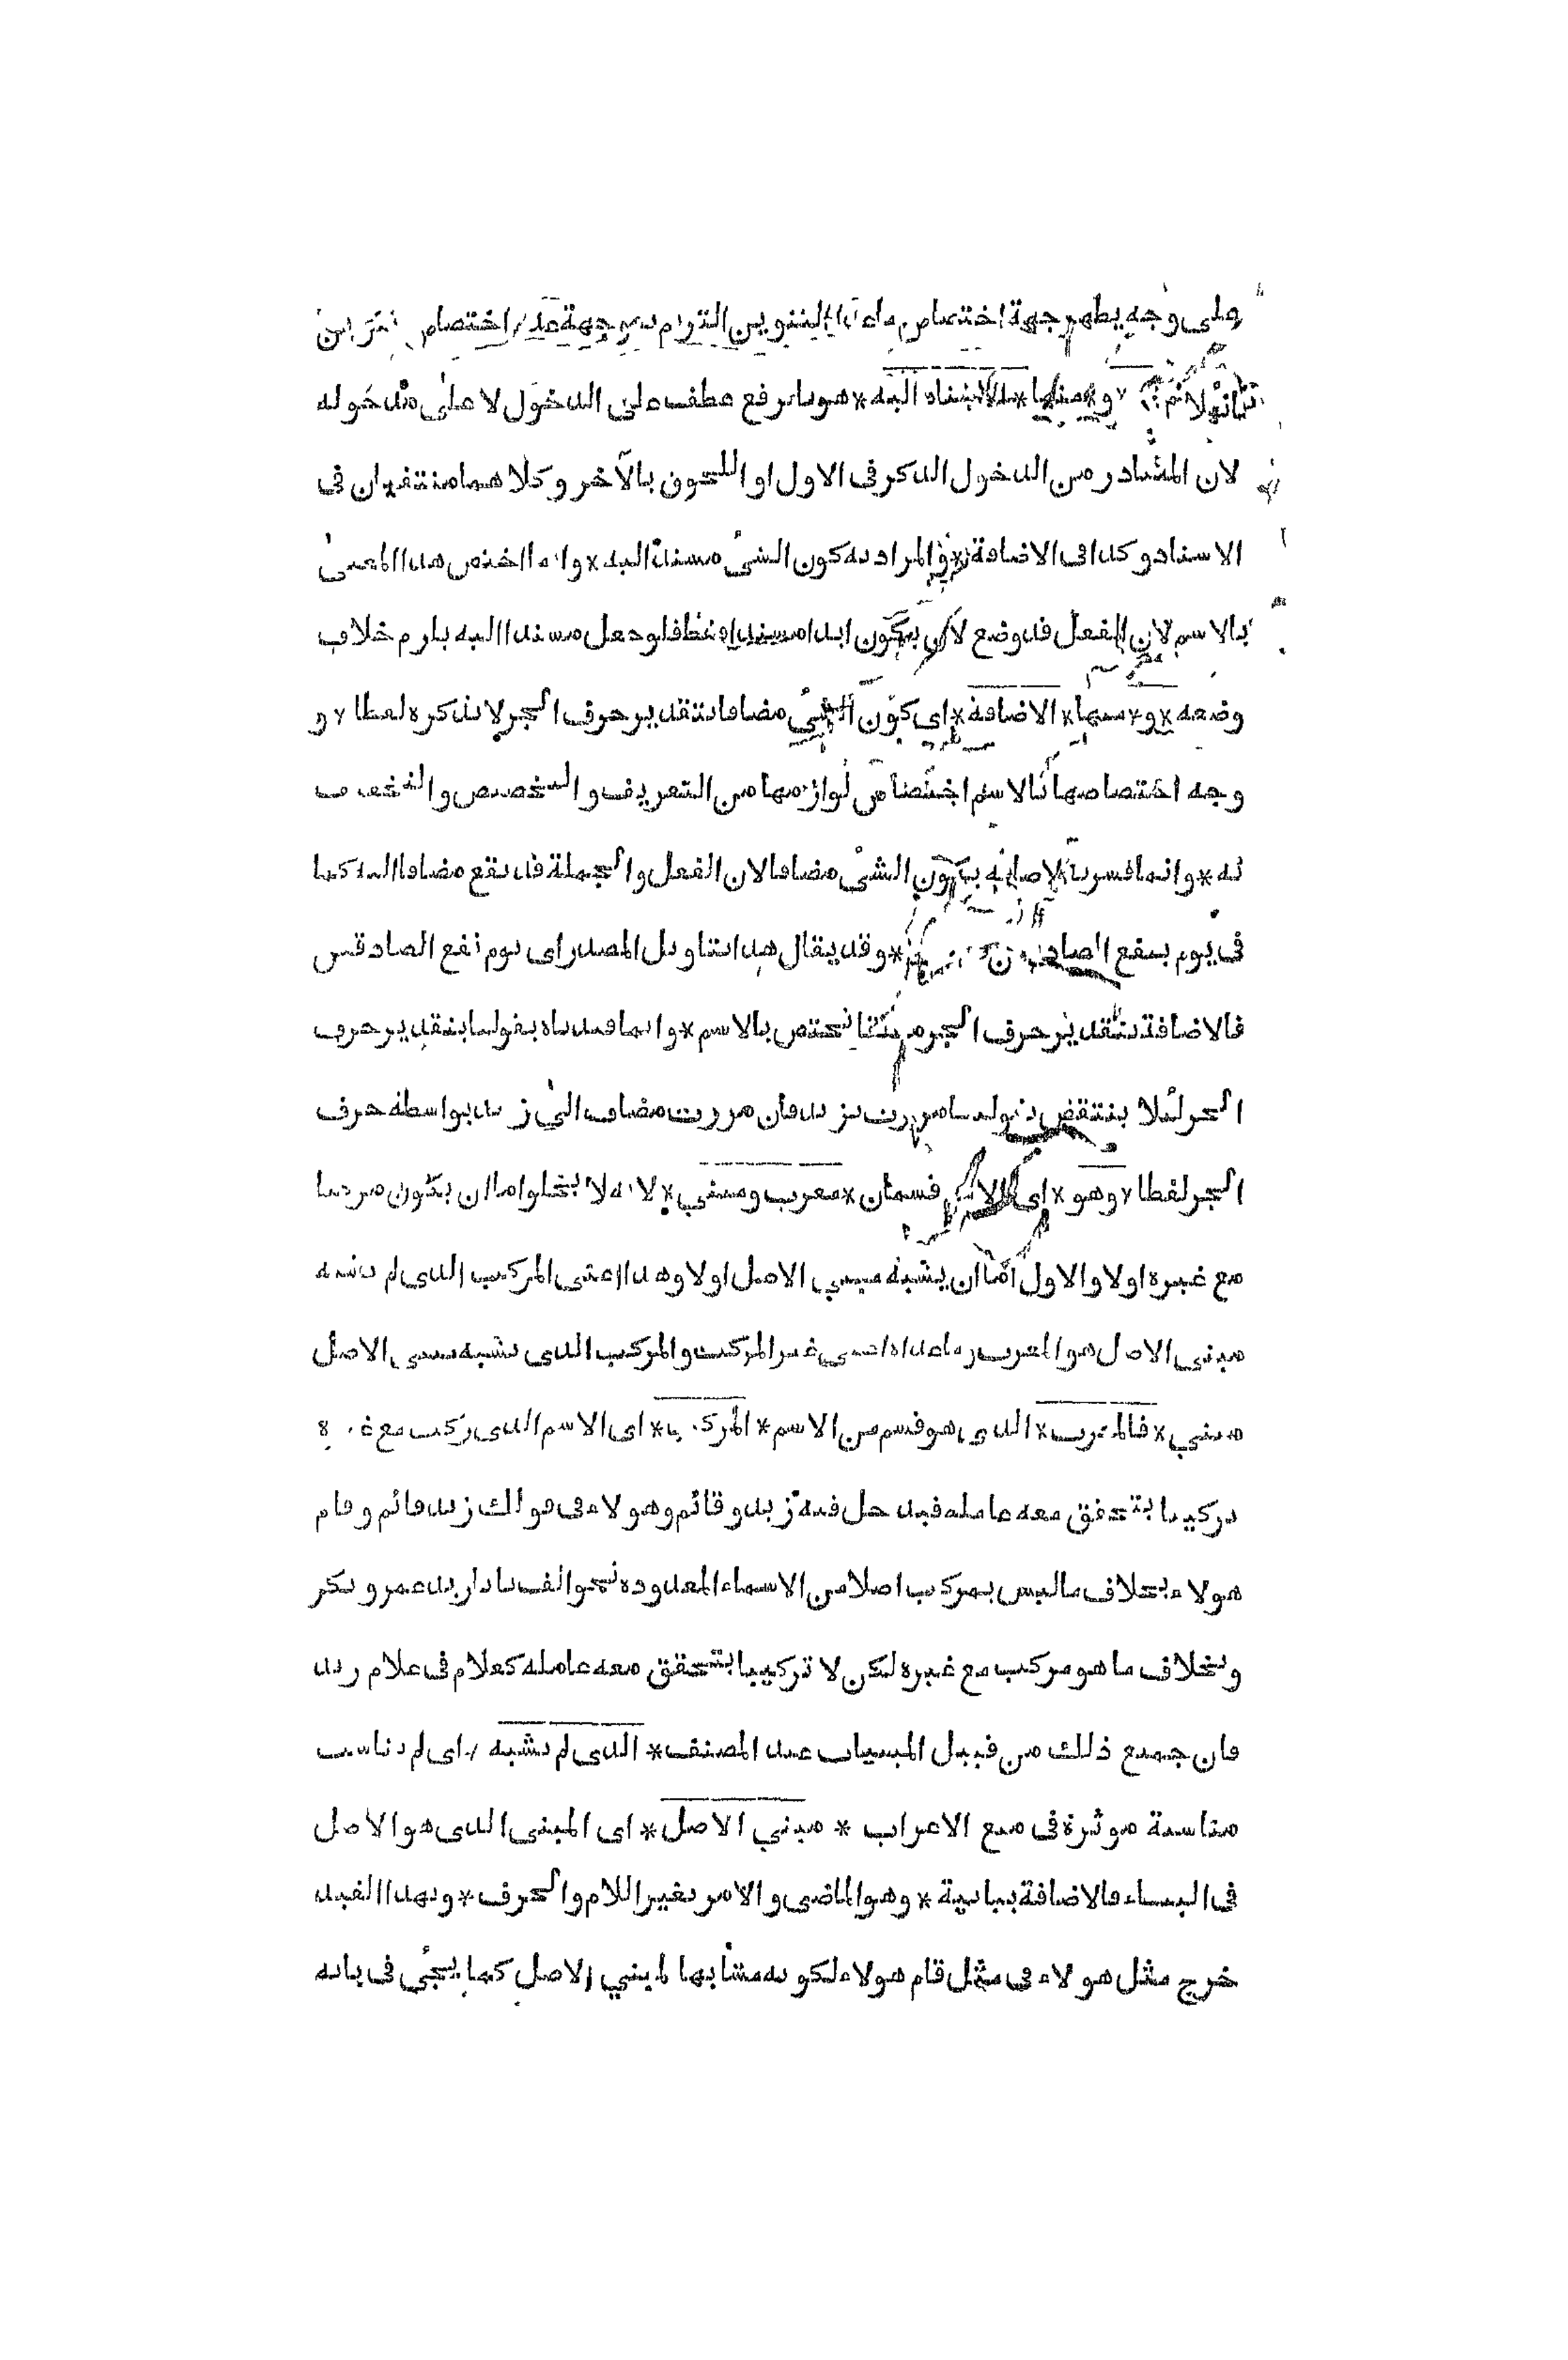 وعلى وجه يظهر جهة اختصاص ما عدا التنوين الترنم به وجهة عدم اختصاص تنوين
الترنم * و * منها * الاسناد اليه * هو بالرفع عطف على الدخول لا على مدخوله
لان المتبادر من الدخول الذكر فى الاول او اللحوق بالآخر وكلاهما منتفيان فى
الاسناد وكذا فى الاضافة * والمراد به كون الشئ مسندا اليه * وانما اختص هذا المعنى
بالاسم لان الفعل قد وضع لان يكون ابدا مسندا فقط فلو جعل مسندا اليه يلزم خلاف
وضعه * و * منها * الاضافة * اى كون الشئ مضافا بتقدير حرف الجر لا بذكره لفظا * و
وجه اختصاصها بالاسم اختصاص لوازمها من التعريف والتخصيص والتخفيف
به * وانما فسرنا الاضافة بكون الشئ مضافا لان الفعل والجملة قد يقع مضافا اليه كما
فى يوم ينفع الصادقين * وقد يقال هذا بتاويل المصدر اى يوم نفع الصادقين
فالاضافة بتقدير حرف الجر مطلقا يختص بالاسم * وانما قيدناه بقولنا بتقدير حرف
الجر لئلا ينتقض بقولنا مررت بزيد فان مررت مضاف الى زيد بواسطة حرف
الجر لفظا * وهو * اى الاسم قسمان * معرب ومبني * لانه لا يخلو اما ان يكون مركبا
مع غيره اولا والاول اما ان يشبه مبني الاصل اولا وهذا اعنى المركب الذى لم يشبه
مبنى الاصل هو المعرب وما عداه اعنى غير المركب والمركب الذى يشبه مبنى الاصل
مبني * فالمعرب * الذى هو قسم من الاسم * المركب * اى الاسم الذى ركب مع غيره
تركيبا يتحقق معه عامله فيدخل فيه زيد وقائم وهولاء فى قولك زيد قائم وقام
هولاء بخلاف ما ليس بمركب اصلا من الاسماء المعدودة نحو الف با تا زيد عمرو بكر
وبخلاف ما هو مركب مع غيره لكن لا تركيبا يتحقق معه عامله كغلام فى غلام زيد
فان جميع ذلك من قبيل المبنيات عند المصنف * الذى لم يشبه * اى لم يناسب
مناسبة موثرة فى منع الاعراب * مبني الاصل * اى المبنى الذى هو الاصل
فى البناء فالاضافة بيانية * وهو الماضى والامر بغير اللام والحرف * وبهذا القيد
خرج مثل هولاء فى مثل قام هولاء لكونه مشابها لمبني الاصل كما يجئ فى بابه